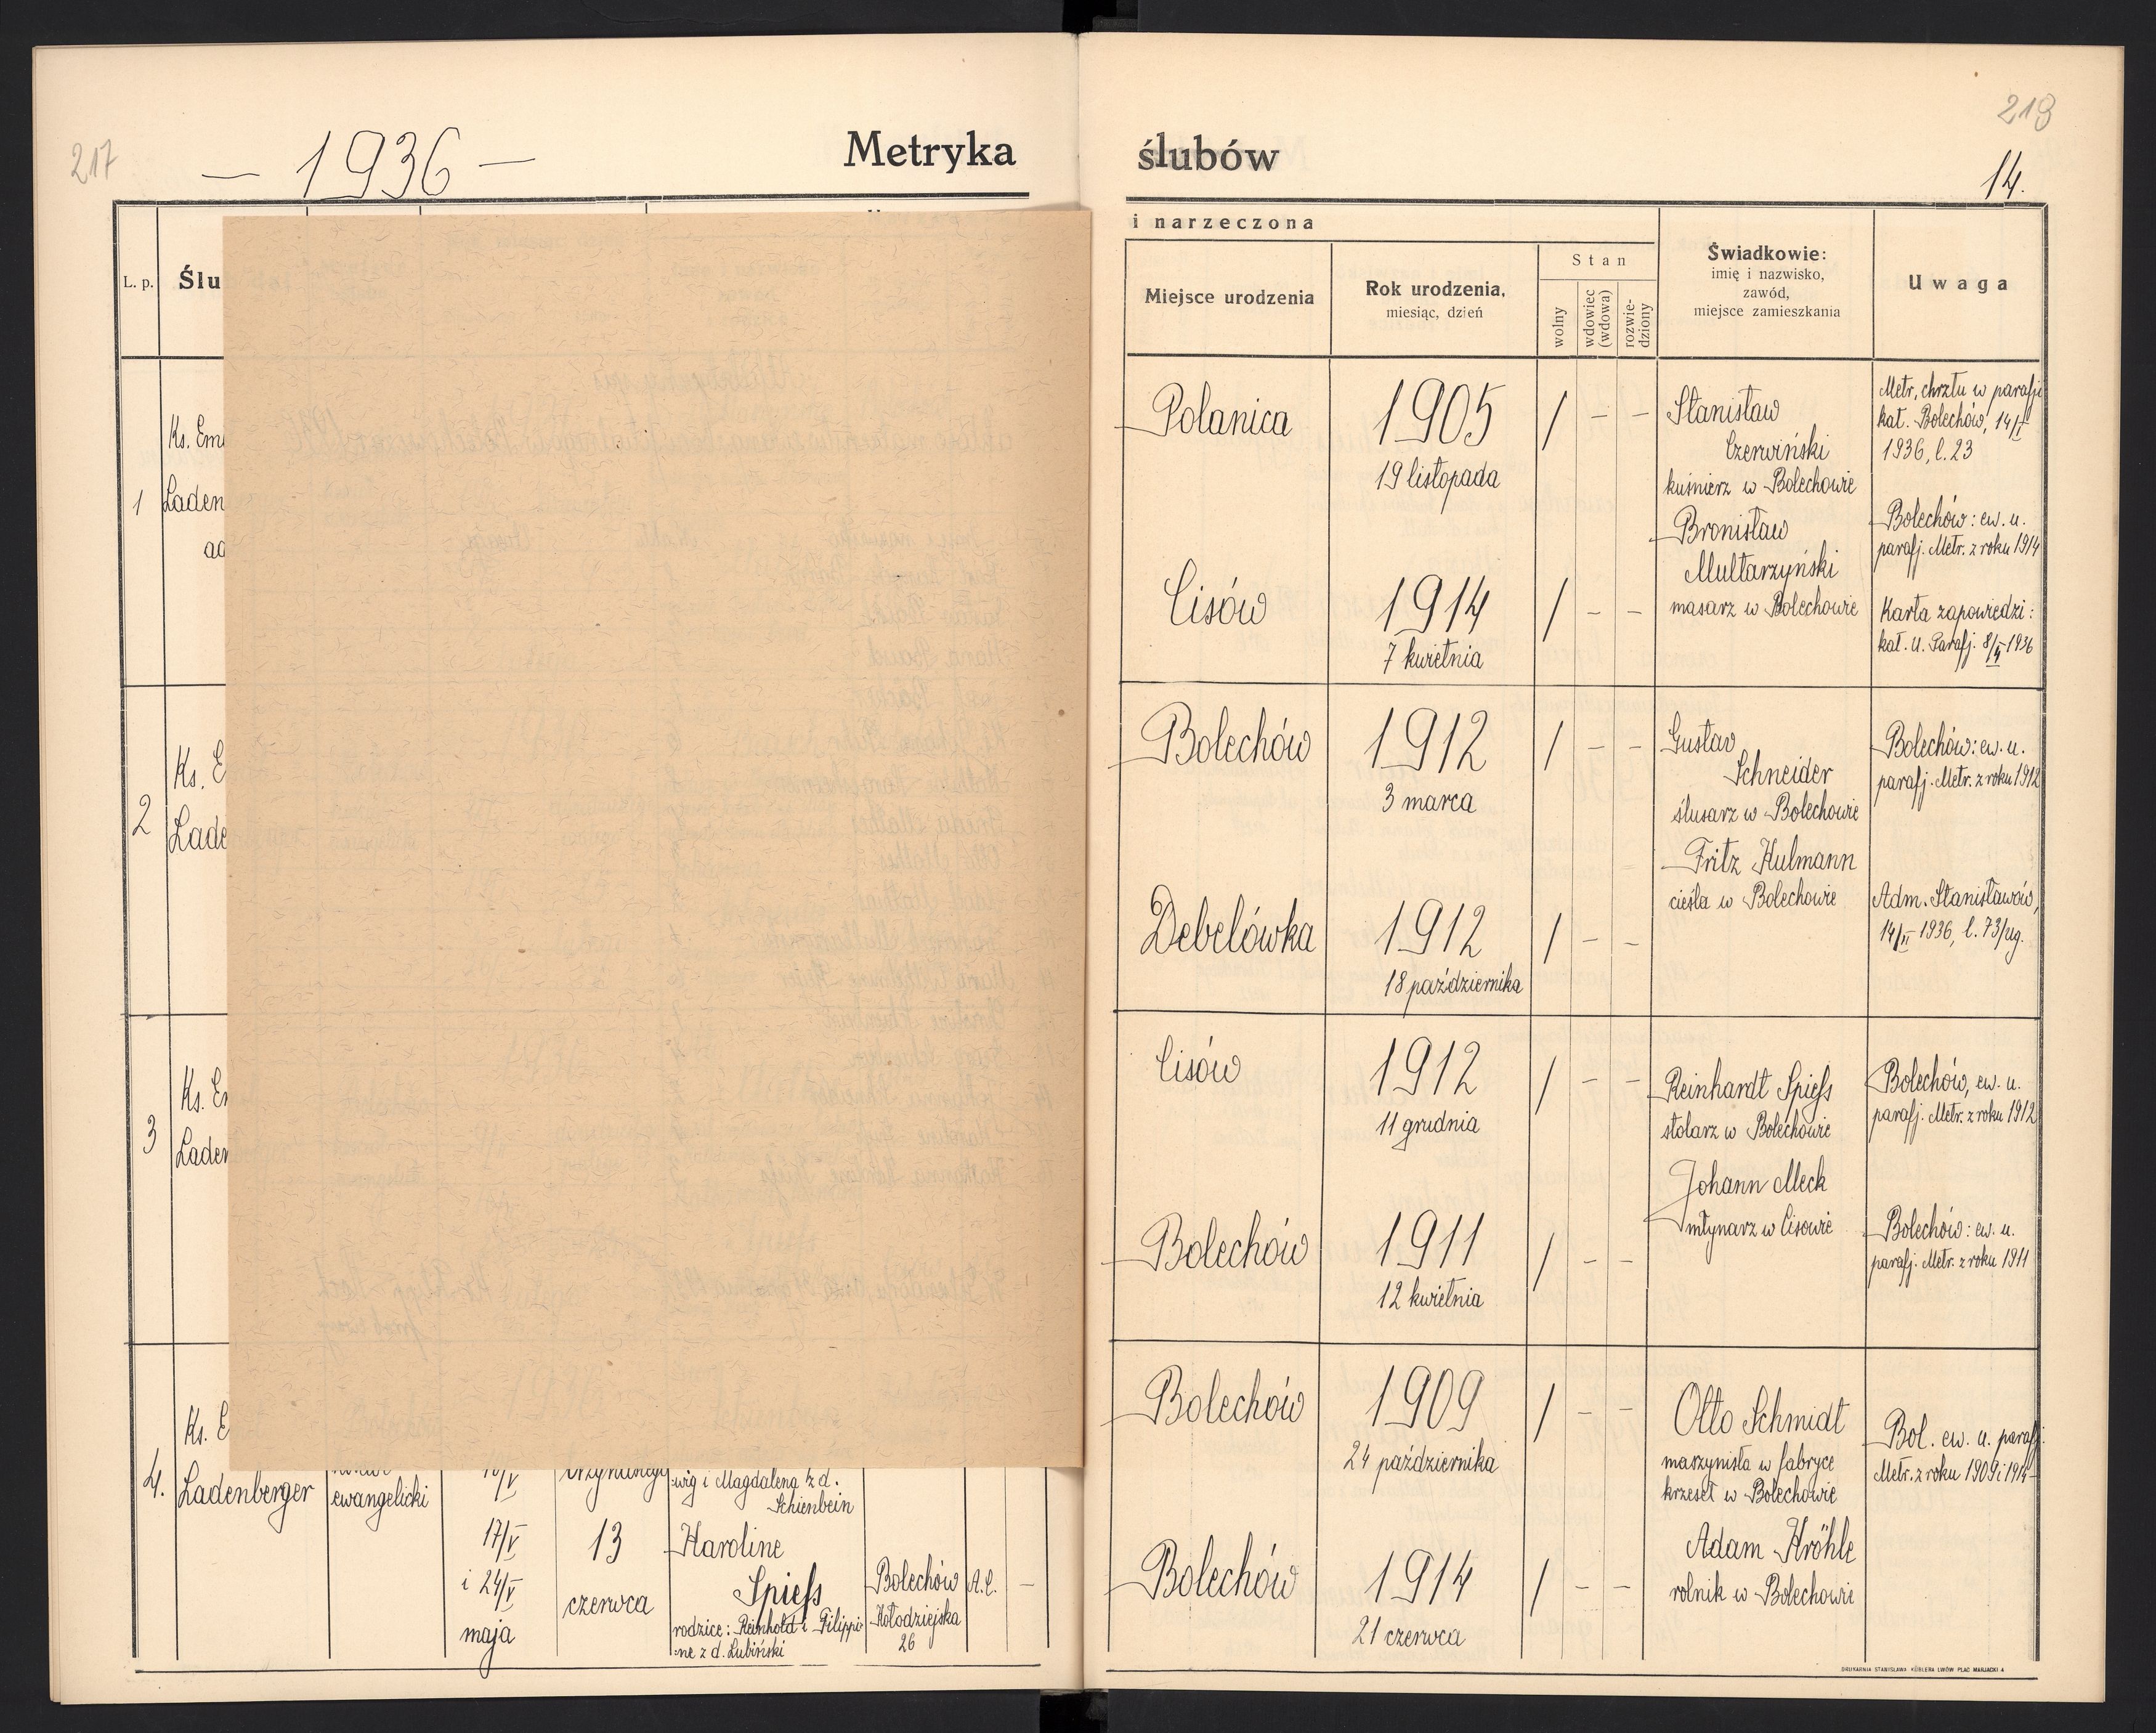 217
— 1936 —
Metryka
L. p.
Ślu
1
Ks. Em
Laden
ad
2
Ks. E
Lade
3
Ks. Er
Laden
4.
Ks. E
Ladenberger
ewangelicki
17/V
i 24/V
maja
13
czerwca
wig i Magdalena z d.
Schienbein
Karoline
Spiefs
rodzice: Reinhold i Filippi-
ne z d. Lubiński
Bolechów
Kołodziejska
26
A.C.
—
219
ślubów
14.
i narzeczona
Miejsce urodzenia
Rok urodzenia,
miesiąc, dzień
Stan
wolny
wdowiec
(wdowa)
rozwie-
dziony
Świadkowie:
imię i nazwisko,
zawód,
miejsce zamieszkania
Uwaga
Polanica
1905
19 listopada
/ – –
Cisów
1914
7 kwietnia
/ – –
Stanisław
Czerwiński
kuśnierz w Bolechowie
Bronisław
Multarzyński
masarz w Bolechowie
Metr. chrztu w parafji
kat. Bolechów, 14/I
1936, l. 23
Bolechów: ew. u.
parafj. Metr. z roku 1914
Karta zapowiedzi:
kat. u. Parafj. 8/II 1936
Bolechów
1912
3 marca
/ – –
Debelówka
1912
18 października
/ – –
Gustav
Schneider
ślusarz w Bolechowie
Fritz Kulmann
cieśla w Bolechowie
Bolechów: ew. u.
parafj. Metr. z roku 1912
Adm. Stanisławów,
14/II 1936, l. 73/ug.
Cisów
1912
11 grudnia
/ – –
Bolechów
1911
12 kwietnia
/ – –
Reinhardt Spiefs
stolarz w Bolechowie
Johann Meck
młynarz w Cisowie
Bolechów, ew. u.
parafj. Metr. z roku 1912
Bolechów: ew. u.
parafj. Metr. z roku 1911
Bolechów
1909
24 października
/ – –
Bolechów
1914
21 czerwca
/ – –
Otto Schmidt
maszynista w fabryce
krzeseł w Bolechowie
Adam Kröhle
rolnik w Bolechowie
Bol. ew. u. parafj.
Metr. z roku 1909 i 1914
DRUKARNIA STANISŁAWA KÜBLERA LWÓW PLAC MARJACKI 4